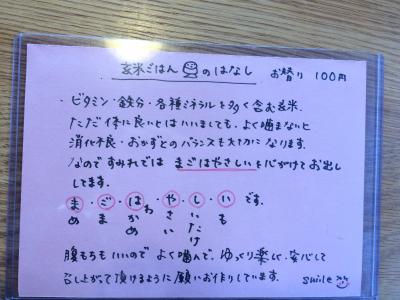 玄米ごはんのはなし お替り 100円
・ビタミン・鉄分・各種ミネラルを多く含む玄米。
ただ体に良いとはいいましても、よく噛まないと
消化不良・おかずとのバランスも大切になります。
なのですみれでは まごはやさしいを心がけてお出し
してます。
ま・ご・は・や・し・い です。
わ さ い も
め ま か め い た
け
腹もちもいいので よく噛んで、ゆっくり楽しく、安心して
召し上がって頂けるように願いお作りしています。 smile